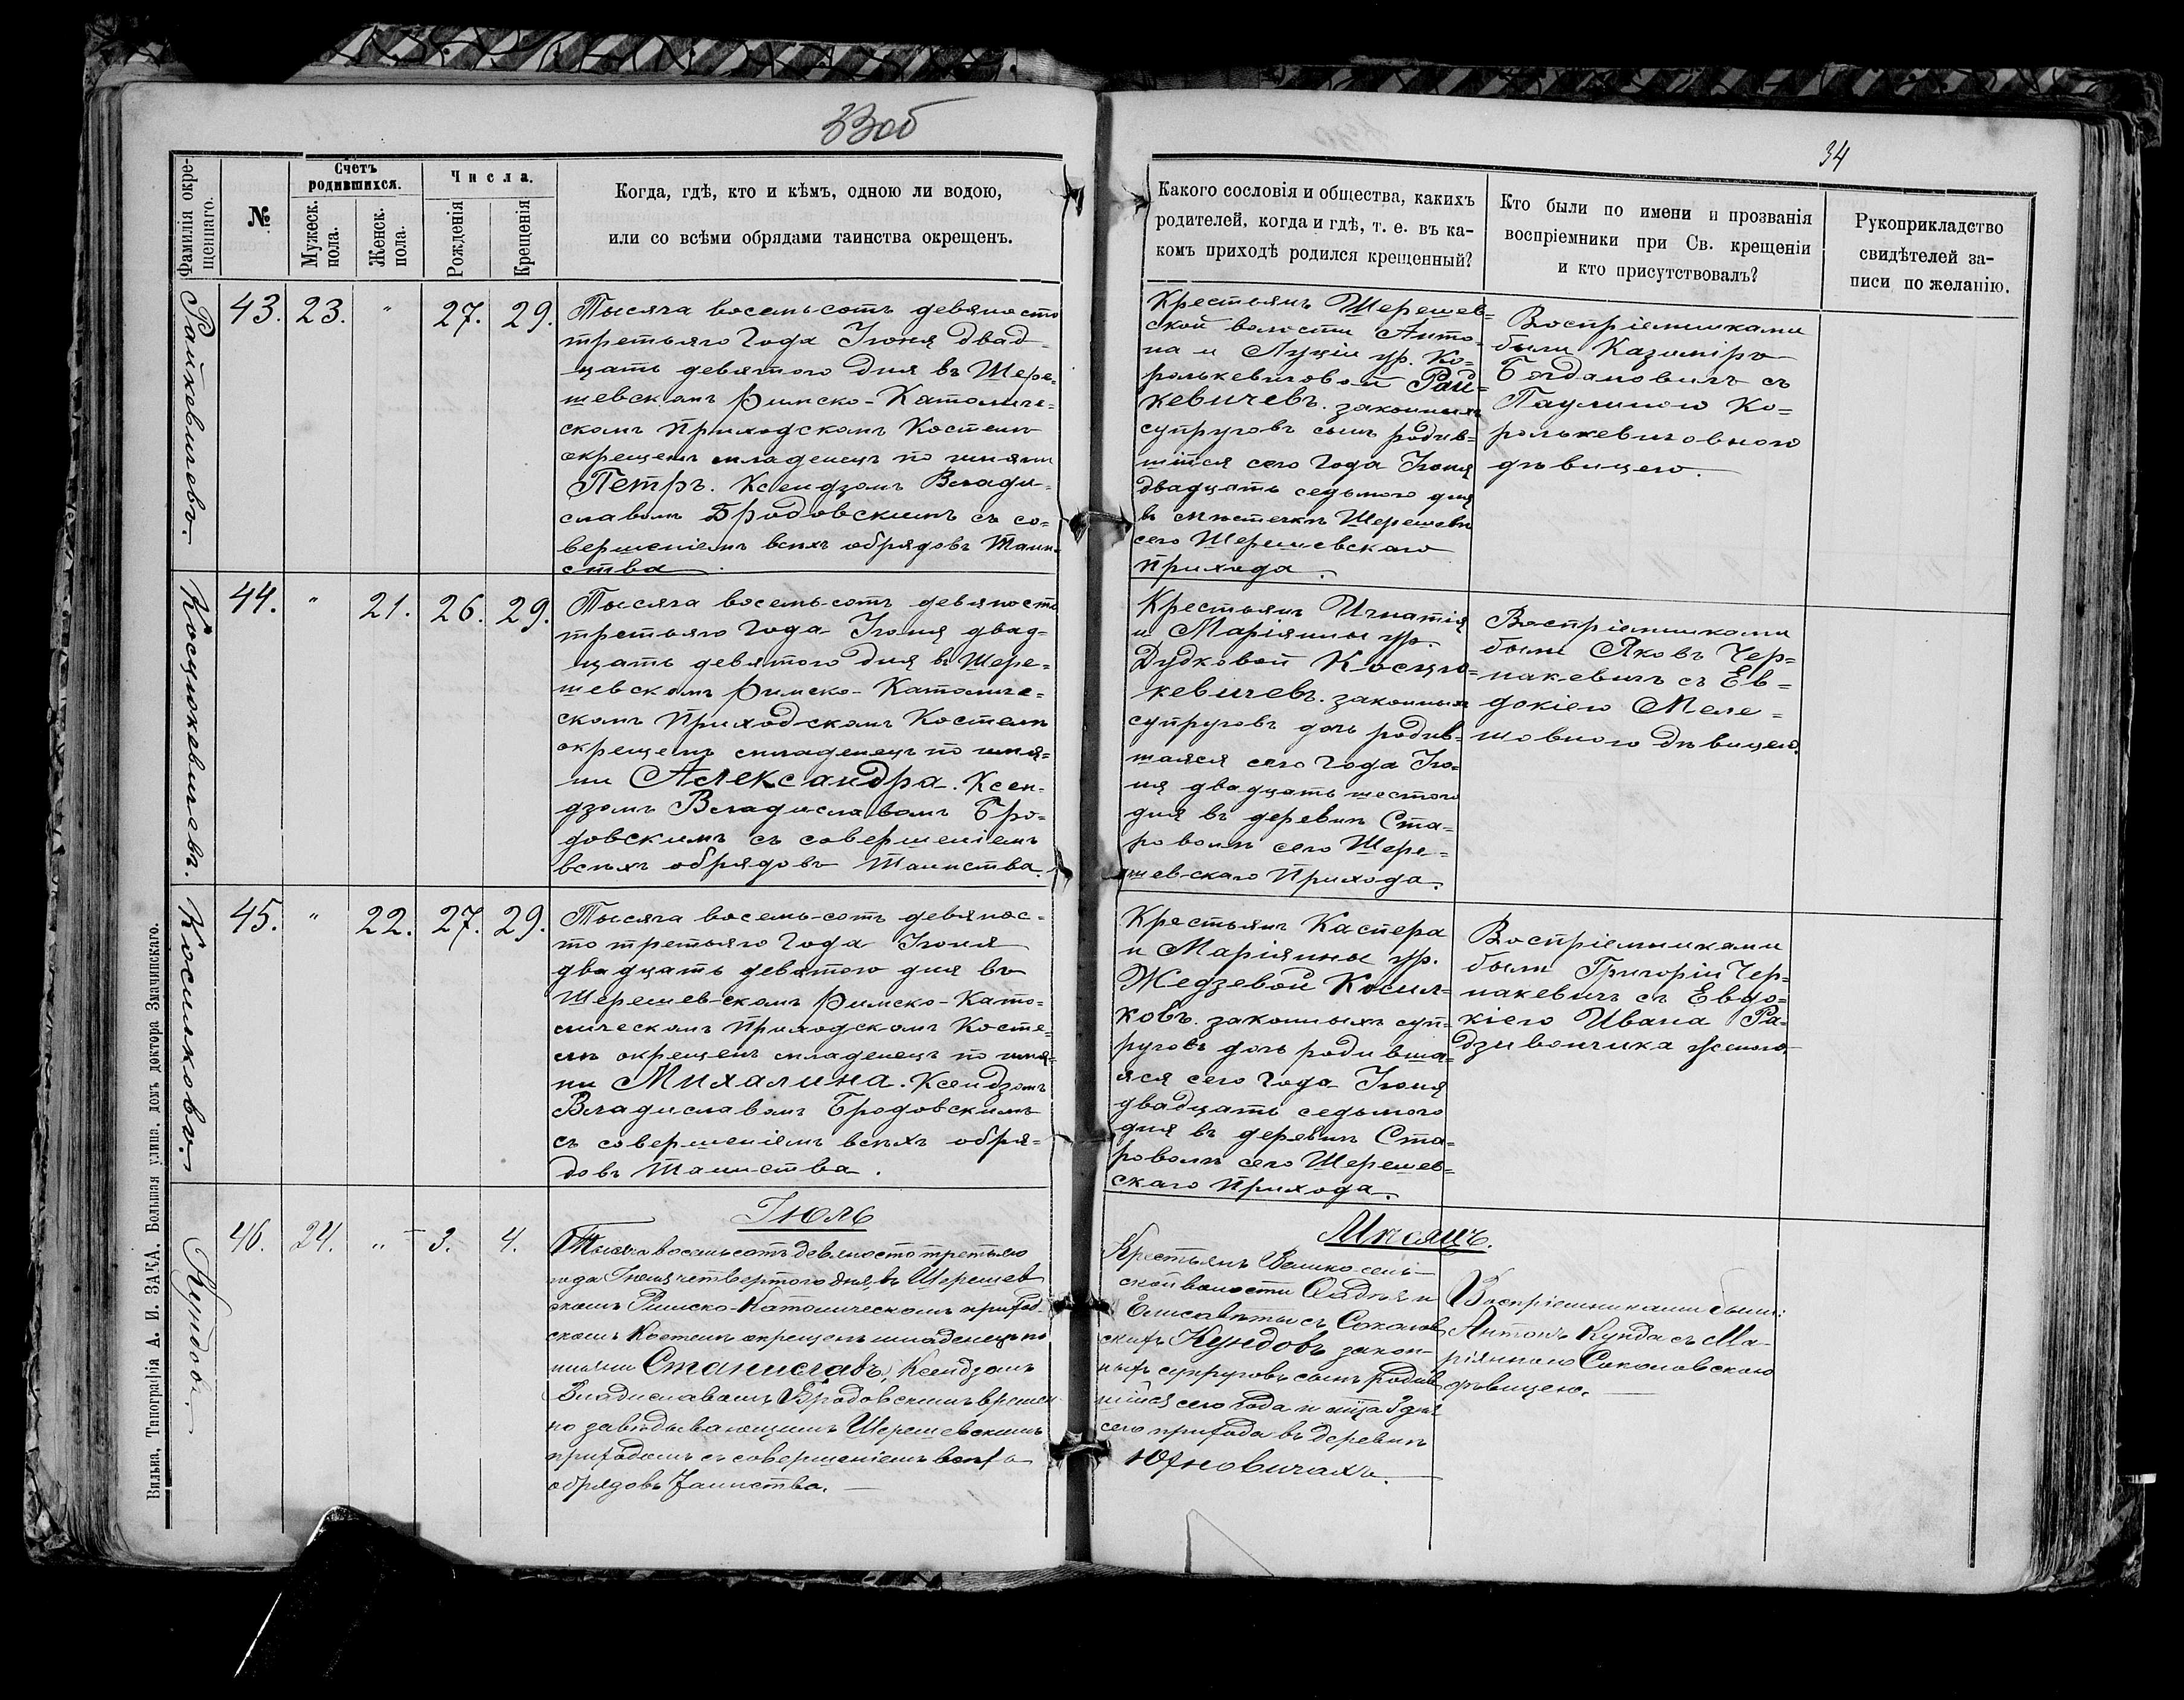 33об
34
Фамилія окре-
щеннаго.
№
Счетъ
родившихся.
Мужеск.
пола.
Женск.
пола.
Числа.
Рожденія
Крещенія
Когда, гдѣ, кто и кѣмъ, одною ли водою,
или со всѣми обрядами таинства окрещенъ.
Какого сословія и общества, какихъ
родителей, когда и гдѣ, т. е. въ ка-
комъ приходѣ родился крещенный?
Кто были по имени и прозванія
воспріемники при Св. крещеніи
и кто присутствовалъ?
Рукоприкладство
свидѣтелей за-
писи по желанію.
Райкевичевъ.
43. 23. " 27. 29.
Тысяча восемь-сотъ девяносто
третьяго Года Іюня двад-
цать девятого дня въ Шере-
шевскомъ Римско-Католиче-
скомъ Приходскомъ Костелѣ
окрещенъ младенецъ по имяни
Петръ. Ксендзомъ Влади-
славомъ Бродовскимъ съ со-
вершеніемъ всѣхъ обрядовъ Таин-
ства.
Крестьянъ Шерешев-
ской волости Анто-
на и Луціи ур. Ко-
ролькевичовой Рай-
кевичевъ. законныхъ
супруговъ сынъ родив-
шійся сего Года Іюня
двадцать седьмого дня
въ мѣстечкѣ Шерешевѣ
сего Шерешевскаго
Прихода.
Воспріемниками
были Казиміръ
Богдановичъ съ
Паулиною Ко-
ролькевичовною
дѣвицею.
Косцюкевичевъ.
44. " 21. 26. 29.
Тысяча восемь-сотъ девяносто
третьяго Года Іюня двад-
цать девятого дня въ Шере-
шевскомъ Римско-Католиче-
скомъ Приходскомъ Костелѣ
окрещенъ младенецъ по имя-
ни Александра. Ксен-
дзомъ Владиславомъ Бро-
довскимъ съ совершеніемъ
всѣхъ обрядовъ Таинства.
Крестьянъ Игнатія
и Маріянны ур.
Дудковой Косцю-
кевичевъ. законныхъ
супруговъ дочь родив-
шаяся сего Года Ію-
ня двадцать шестого
дня въ деревнѣ Ста-
роволѣ сего Шере-
шевскаго Прихода.
Воспріемниками
были Яковъ Чер-
накевичъ съ Ев-
докіею Меле-
шовною дѣвицею.
Косилковъ.
45. " 22. 27. 29.
Тысяча восемь-сотъ девянос-
то третьяго Года Іюня
двадцать девятого дня въ
Шерешев-скомъ Римско-Като-
лическомъ Приходскомъ Косте-
лѣ окрещенъ младенецъ по имя-
ни Михалина. Ксендзомъ
Владиславомъ Бродовскимъ
съ совершеніемъ всѣхъ обря-
довъ Таинства.
Крестьянъ Каспера
и Маріянны ур.
Жедзевой Косил-
ковъ. законныхъ суп-
руговъ дочь родивша-
яся сего Года Іюня
двадцать седьмого
дня въ деревнѣ Ста-
роволѣ сего Шерешев-
скаго Прихода.
Воспріемниками
были Григорій Чер-
накевичъ съ Евдо-
кіею Ивана Ра-
дзивончика женою.
Іюль
Мѣсяцъ.
Кундовъ.
46. 24. " 3. 4.
Тысяча восемьсотъ девяносто третьяго
года Іюля четвертого дня, въ Шерешев
скомъ Римско-Католическомъ приход-
скомъ Костелѣ окрещенъ младенецъ по
имяни Станиславъ, Ксендзомъ
Владиславомъ Бродовскимъ времен
но завѣдывающимъ Шерешевскимъ
приходомъ съ совершеніемъ всѣхъ
обрядовъ Таинства.
Крестьянъ Велико-сель-
ской волости Фаддея и
Елисаветы съ Соколов
скихъ Кундовъ закон-
ныхъ супруговъ сынъ родив
шійся сего года и мѣсяца 3 дня
сего прихода въ деревнѣ
Юхновичахъ.
Воспріемниками были:
Антонъ Кунда съ Ма-
ріянною Соколовскою
дѣвицею.
Вильна, Типографія А. И. ЗАКА. Большая улица, домъ доктора Змачинскаго.